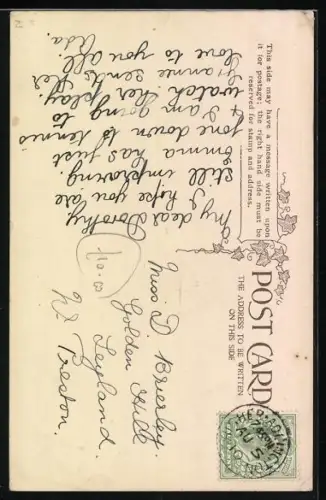 This side may have a message written upon
it for postage; the right hand side must be
reserved for stamp and address.
POST CARD
THE ADDRESS TO BE WRITTEN
ON THIS SIDE
My dear Dorothy
I hope you are
still improving.
Emma has just
gone down to tennis
& I am going to
watch her play.
Fannie sends her
love to you all.
Ada.
Miss D. Brierley.
Golden Hill
Leyland.
Nr Preston.